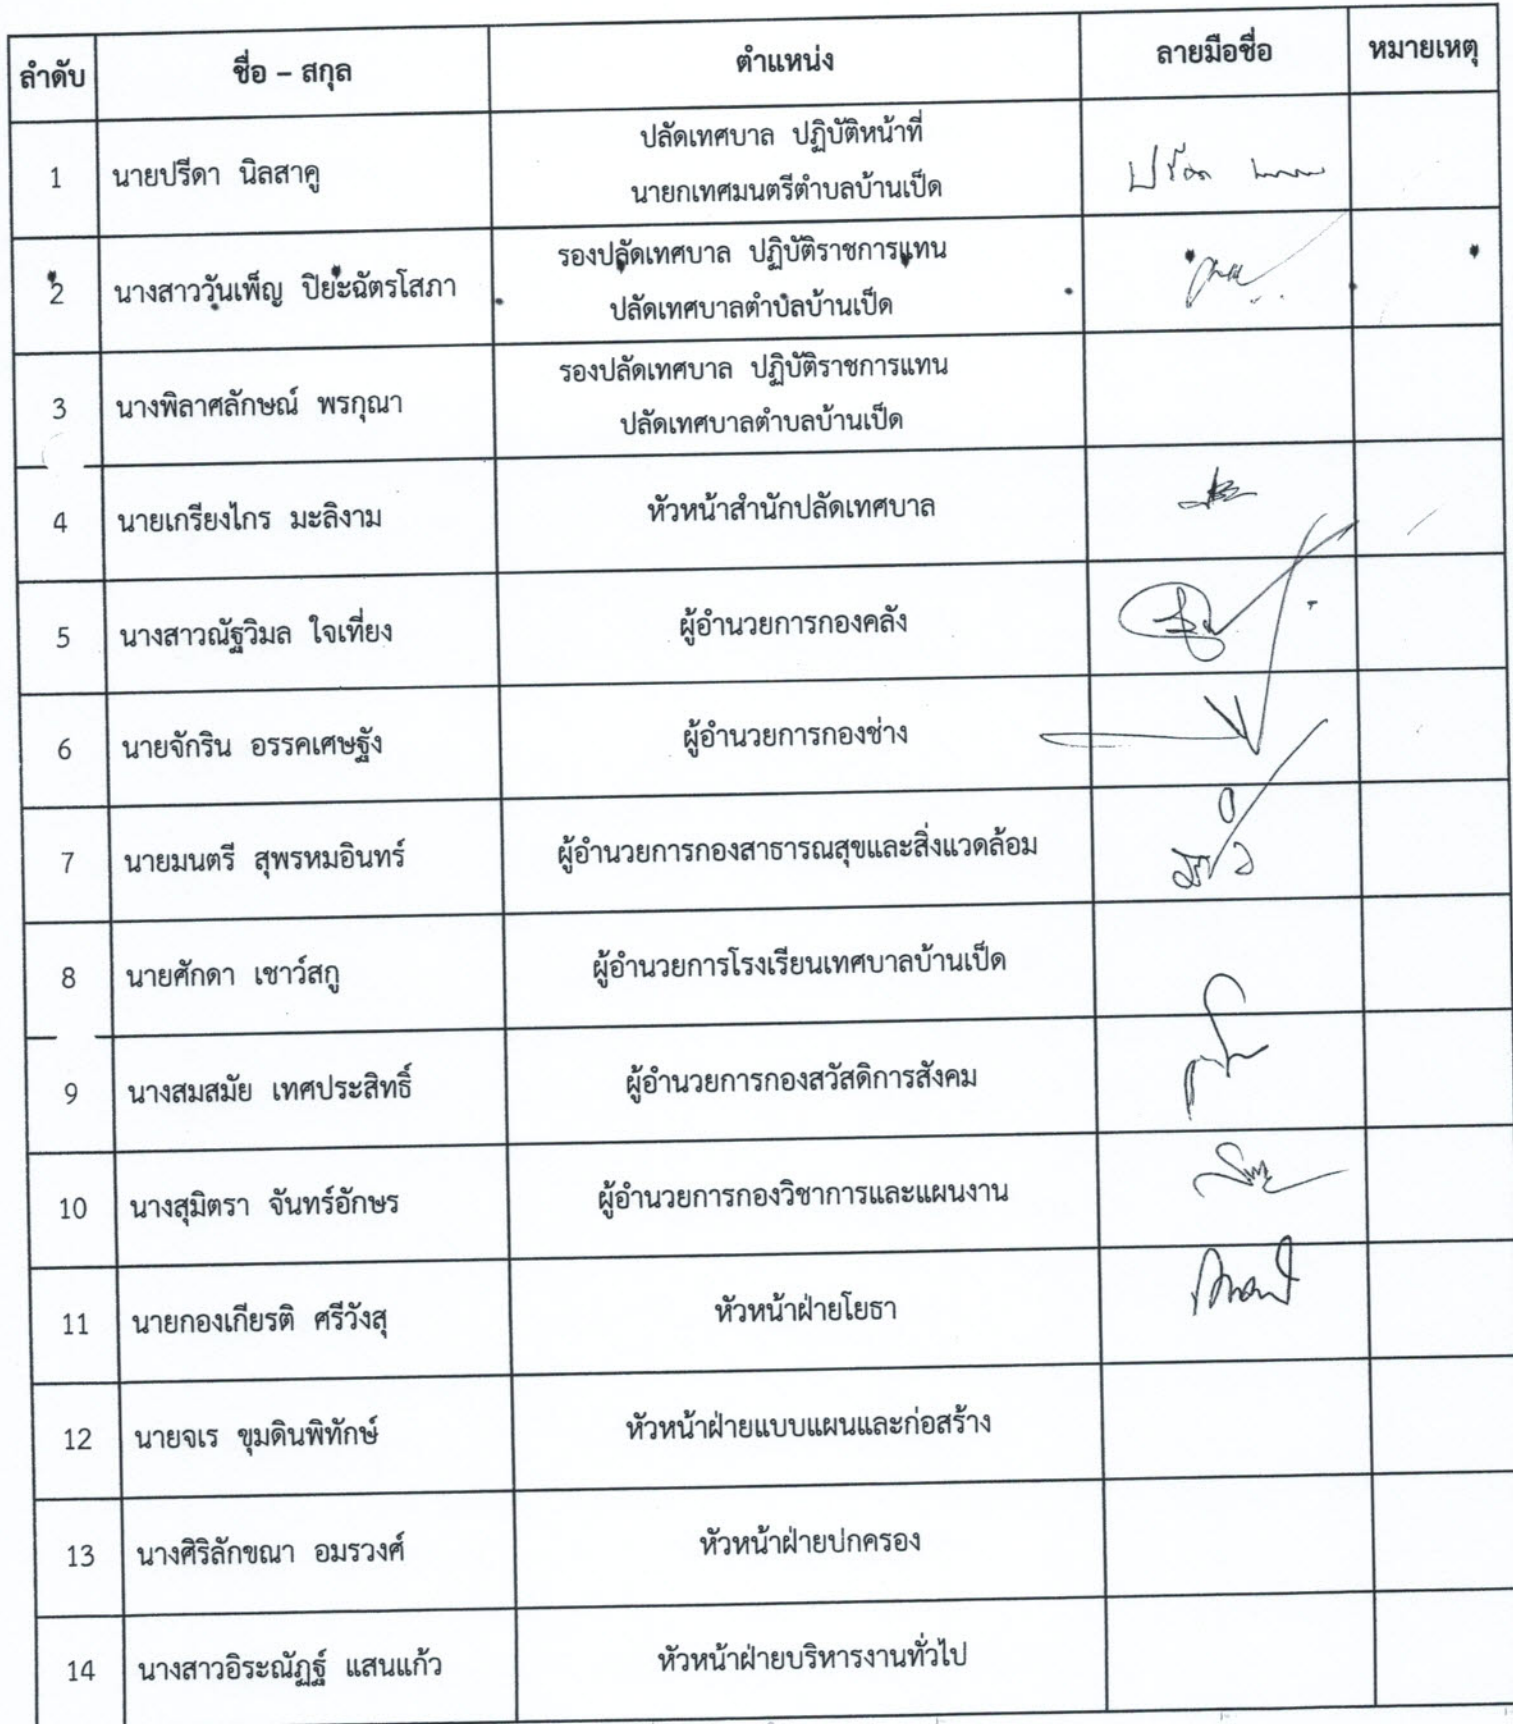 ลำดับ ชื่อ – สกุล ตำแหน่ง ลายมือชื่อ หมายเหตุ
1 นายปรีดา นิลสาคู ปลัดเทศบาล ปฏิบัติหน้าที่
นายกเทศมนตรีตำบลบ้านเป็ด
2 นางสาววันเพ็ญ ปิยะฉัตรโสภา รองปลัดเทศบาล ปฏิบัติราชการแทน
ปลัดเทศบาลตำบลบ้านเป็ด
3 นางพิลาศลักษณ์ พรกุณา รองปลัดเทศบาล ปฏิบัติราชการแทน
ปลัดเทศบาลตำบลบ้านเป็ด
4 นายเกรียงไกร มะลิงาม หัวหน้าสำนักปลัดเทศบาล
5 นางสาวณัฐวิมล ใจเที่ยง ผู้อำนวยการกองคลัง
6 นายจักริน อรรคเศษฐัง ผู้อำนวยการกองช่าง
7 นายมนตรี สุพรหมอินทร์ ผู้อำนวยการกองสาธารณสุขและสิ่งแวดล้อม
8 นายศักดา เชาว์สกู ผู้อำนวยการโรงเรียนเทศบาลบ้านเป็ด
9 นางสมสมัย เทศประสิทธิ์ ผู้อำนวยการกองสวัสดิการสังคม
10 นางสุมิตรา จันทร์อักษร ผู้อำนวยการกองวิชาการและแผนงาน
11 นายกองเกียรติ ศรีวังสุ หัวหน้าฝ่ายโยธา
12 นายจเร ขุมดินพิทักษ์ หัวหน้าฝ่ายแบบแผนและก่อสร้าง
13 นางศิริลักขณา อมรวงศ์ หัวหน้าฝ่ายปกครอง
14 นางสาวอิระณัฏฐ์ แสนแก้ว หัวหน้าฝ่ายบริหารงานทั่วไป